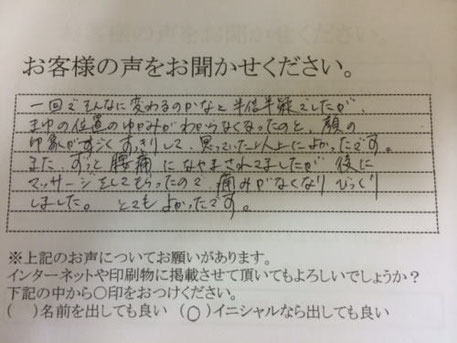 お客様の声をお聞かせください。
一回でそんなに変わるのかなと半信半疑でしたが、
まゆの位置のゆがみがわからなくなったのと、顔の
印象がすごくすっきりして、思っていた以上によかったです。
また ずっと腰痛になやまされてましたが 後に
マッサージをしてもらったので、痛みがなくなりびっくり
しました。 とてもよかったです。
※上記のお声についてお願いがあります。
インターネットや印刷物に掲載させて頂いてもよろしいでしょうか？
下記の中から○印をおつけください。
(　)名前を出しても良い (○)イニシャルなら出しても良い